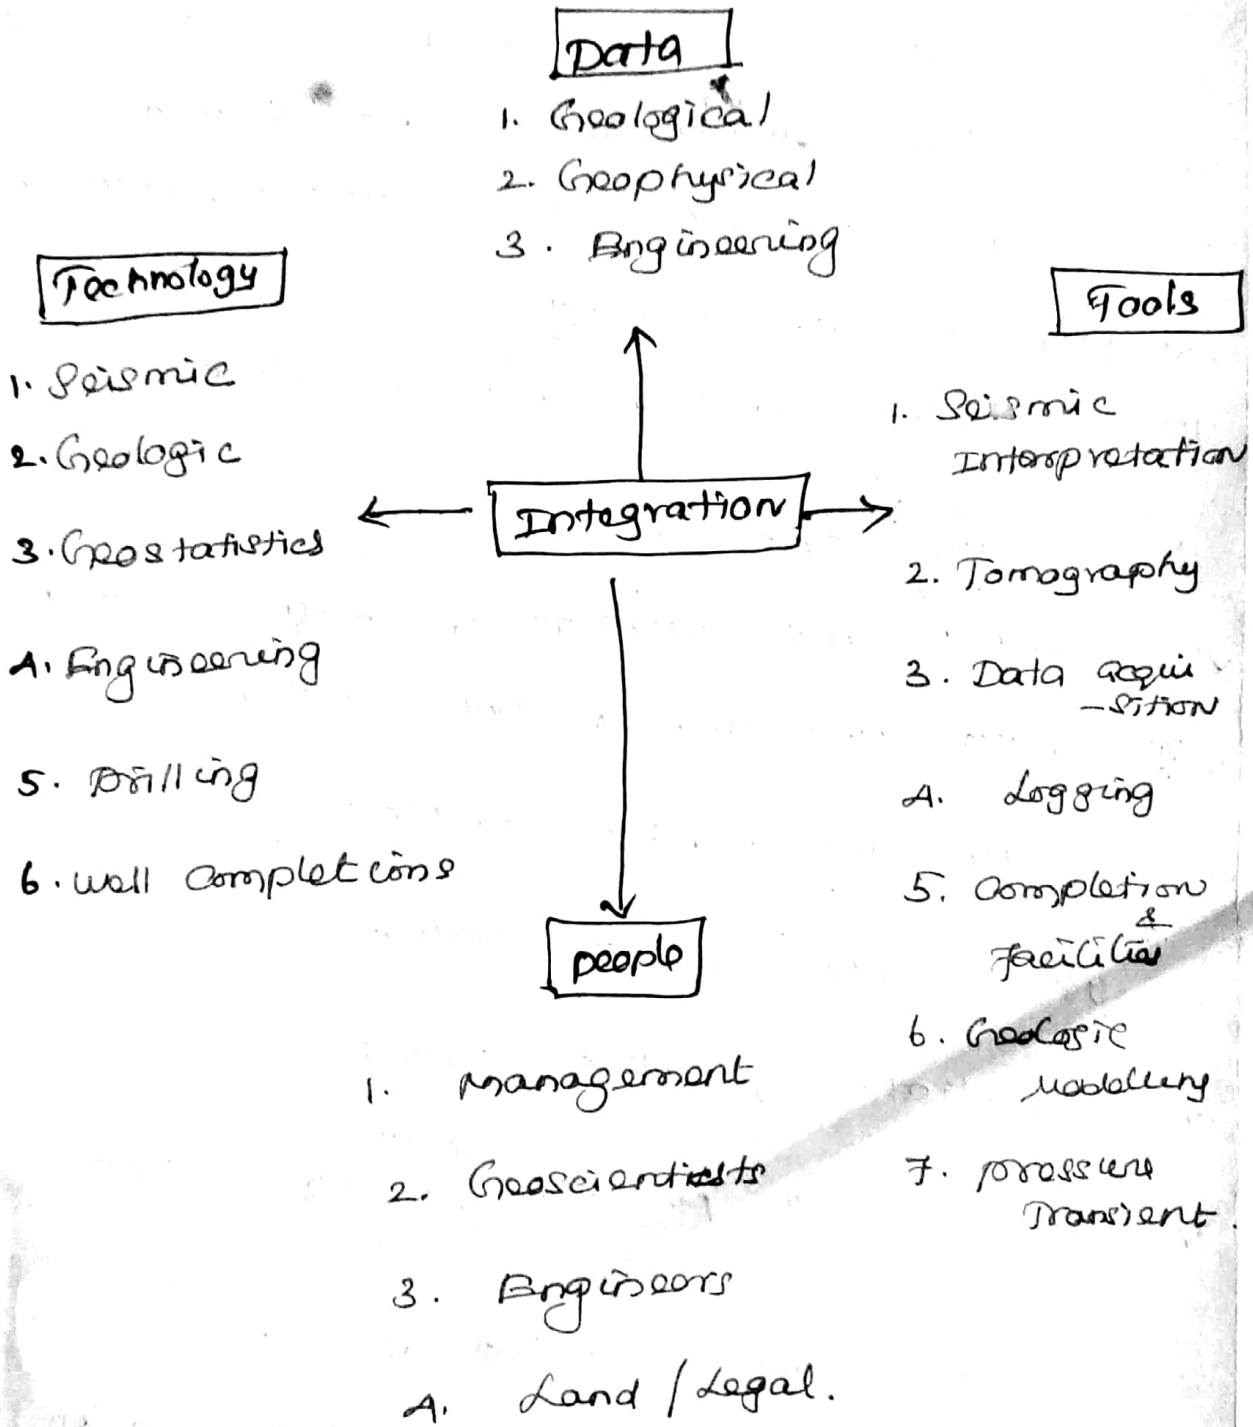 Data
1. Geological
2. Geophysical
3. Engineering
Technology
1. Seismic
2. Geologic
3. Geostatistics
4. Engineering
5. Drilling
6. Well Completions
Integration
Tools
1. Seismic
Interpretation
2. Tomography
3. Data acqui
-sition
4. Logging
5. Completion
&
Facilities
6. Geologic
Modelling
7. pressure
Transient.
people
1. Management
2. Geoscientists
3. Engineers
4. Land / Legal.